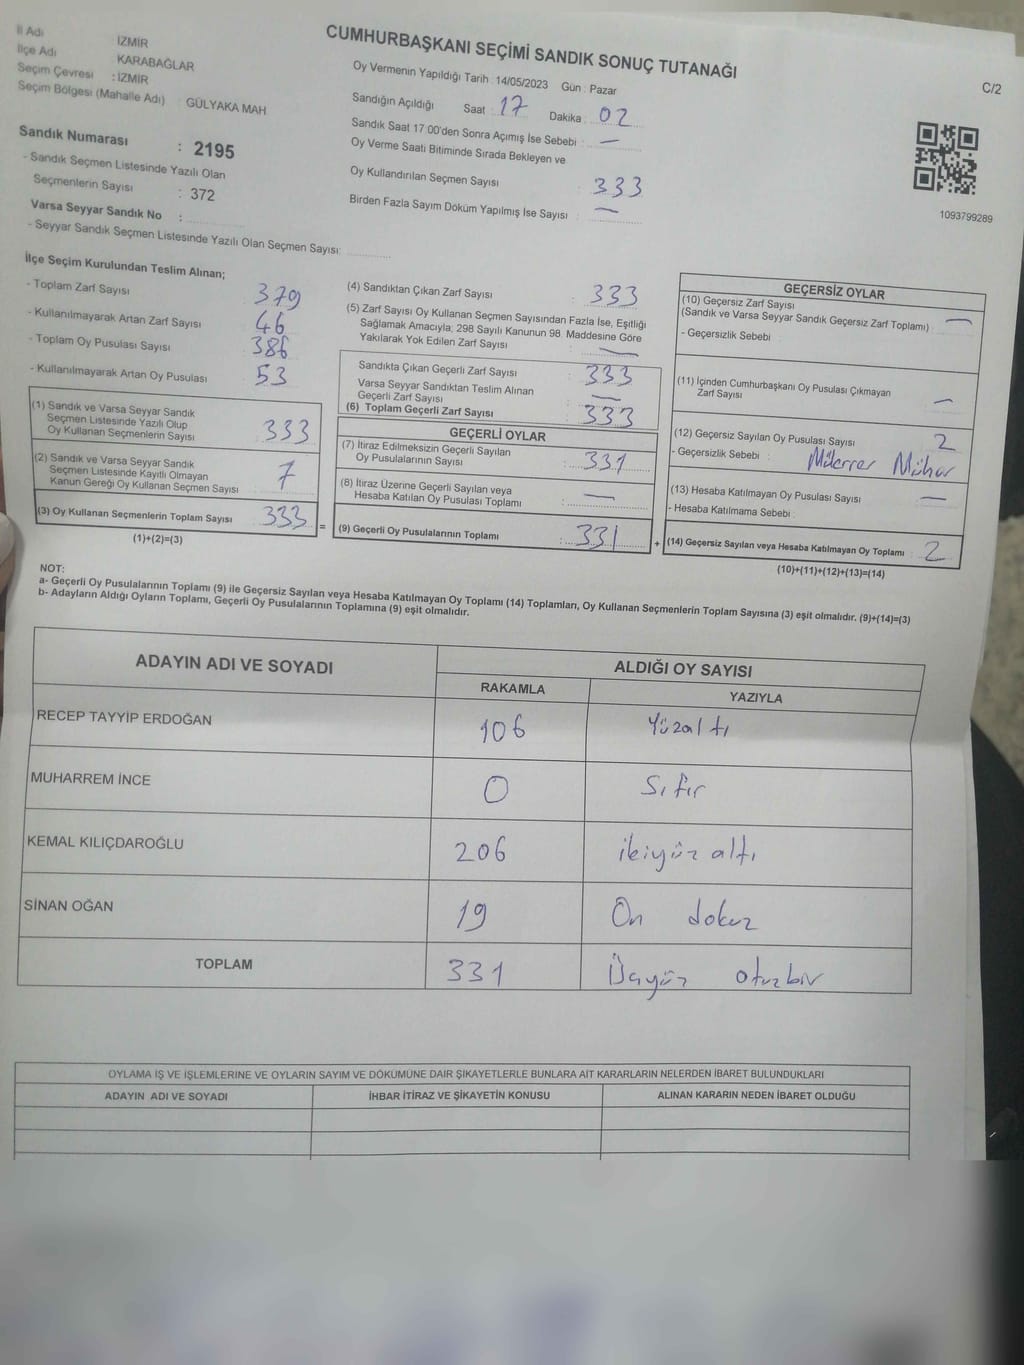 CUMHURBAŞKANI SEÇİMİ SANDIK SONUÇ TUTANAĞI
C/2
İl Adı İZMİR
İlçe Adı KARABAĞLAR
Seçim Çevresi : İZMİR
Seçim Bölgesi (Mahalle Adı) GÜLYAKA MAH
Sandık Numarası : 2195
- Sandık Seçmen Listesinde Yazılı Olan
Seçmenlerin Sayısı : 372
Varsa Seyyar Sandık No :
- Seyyar Sandık Seçmen Listesinde Yazılı Olan Seçmen Sayısı:
Oy Vermenin Yapıldığı Tarih : 14/05/2023 Gün : Pazar
Sandığın Açıldığı Saat : 17 Dakika : 02
Sandık Saat 17:00'den Sonra Açımış İse Sebebi : —
Oy Verme Saati Bitiminde Sırada Bekleyen ve
Oy Kullandırılan Seçmen Sayısı : 333
Birden Fazla Sayım Döküm Yapılmış İse Sayısı : —
1093799289
İlçe Seçim Kurulundan Teslim Alınan;
- Toplam Zarf Sayısı 379
- Kullanılmayarak Artan Zarf Sayısı 46
- Toplam Oy Pusulası Sayısı 386
- Kullanılmayarak Artan Oy Pusulası 53
(1) Sandık ve Varsa Seyyar Sandık
Seçmen Listesinde Yazılı Olup
Oy Kullanan Seçmenlerin Sayısı 333
(2) Sandık ve Varsa Seyyar Sandık
Seçmen Listesinde Kayıtlı Olmayan
Kanun Gereği Oy Kullanan Seçmen Sayısı 7
(3) Oy Kullanan Seçmenlerin Toplam Sayısı 333 =
(1)+(2)=(3)
(4) Sandıktan Çıkan Zarf Sayısı : 333
(5) Zarf Sayısı Oy Kullanan Seçmen Sayısından Fazla İse, Eşitliği
Sağlamak Amacıyla; 298 Sayılı Kanunun 98. Maddesine Göre
Yakılarak Yok Edilen Zarf Sayısı : —
Sandıkta Çıkan Geçerli Zarf Sayısı : 333
Varsa Seyyar Sandıktan Teslim Alınan
Geçerli Zarf Sayısı : —
(6) Toplam Geçerli Zarf Sayısı : 333
GEÇERLİ OYLAR
(7) İtiraz Edilmeksizin Geçerli Sayılan
Oy Pusulalarının Sayısı : 331
(8) İtiraz Üzerine Geçerli Sayılan veya
Hesaba Katılan Oy Pusulası Toplamı : —
(9) Geçerli Oy Pusulalarının Toplamı : 331 +
GEÇERSİZ OYLAR
(10) Geçersiz Zarf Sayısı
(Sandık ve Varsa Seyyar Sandık Geçersiz Zarf Toplamı) : —
- Geçersizlik Sebebi :
(11) İçinden Cumhurbaşkanı Oy Pusulası Çıkmayan
Zarf Sayısı : —
(12) Geçersiz Sayılan Oy Pusulası Sayısı : 2
- Geçersizlik Sebebi : Mühür
(13) Hesaba Katılmayan Oy Pusulası Sayısı : —
- Hesaba Katılmama Sebebi :
(14) Geçersiz Sayılan veya Hesaba Katılmayan Oy Toplamı : 2
(10)+(11)+(12)+(13)=(14)
NOT:
a- Geçerli Oy Pusulalarının Toplamı (9) ile Geçersiz Sayılan veya Hesaba Katılmayan Oy Toplamı (14) Toplamları, Oy Kullanan Seçmenlerin Toplam Sayısına (3) eşit olmalıdır. (9)+(14)=(3)
b- Adayların Aldığı Oyların Toplamı, Geçerli Oy Pusulalarının Toplamına (9) eşit olmalıdır.
ADAYIN ADI VE SOYADI ALDIĞI OY SAYISI
RAKAMLA YAZIYLA
RECEP TAYYİP ERDOĞAN 106 Yüzaltı
MUHARREM İNCE 0 Sıfır
KEMAL KILIÇDAROĞLU 206 ikiyüz altı
SİNAN OĞAN 19 On dokuz
TOPLAM 331 Üçyüz otuzbir
OYLAMA İŞ VE İŞLEMLERİNE VE OYLARIN SAYIM VE DÖKÜMÜNE DAİR ŞİKAYETLERLE BUNLARA AİT KARARLARIN NELERDEN İBARET BULUNDUKLARI
ADAYIN ADI VE SOYADI İHBAR İTİRAZ VE ŞİKAYETİN KONUSU ALINAN KARARIN NEDEN İBARET OLDUĞU